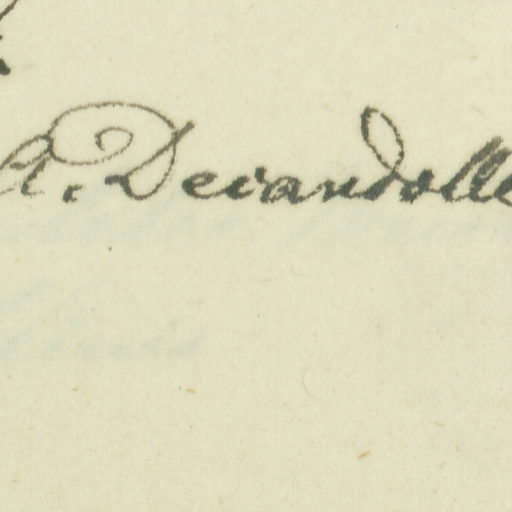 A. Decandolle